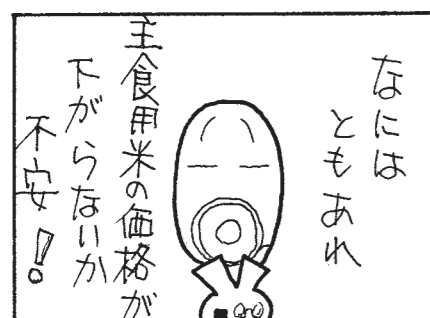 なには
ともあれ
主食用米の価格が
下がらないか
不安！